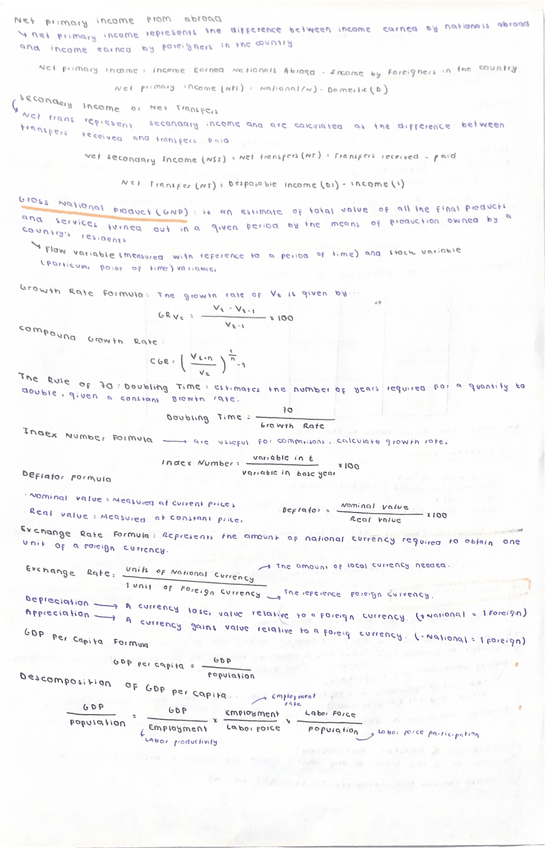 Net primary income from abroad
↳ net primary income represents the difference between income earned by nationals abroad
and income earned by foreigners in the country.
Net primary income = Income Earned Nationals Abroad - Income by Foreigners in the country.
Net primary income (NPI) = National (N) - Domestic (D)
Secondary Income or Net Transfers
↳ Net trans represent secondary income and are calculated as the difference between
transfers received and transfers paid.
Net Secondary Income (NSI) = Net transfers (NT) = Transfers received - paid
Net Transfer (NT) = Desposable Income (DI) - Income (I)
Gross National Product (GNP) : is an estimate of total value of all the final products
and services turned out in a given period by the means of production owned by a
country's residents
↳ Flow variable (measured with reference to a period of time) and stock variable
(particular point of time) variable.
Growth Rate Formula : The growth rate of Vt is given by...
GR Vt = Vt - Vt-1 / Vt-1 x 100
Compound Growth Rate :
CGR = (Vt+n / Vt)^1/n - 1
The Rule of 70 : Doubling Time : estimates the number of years required for a quantity to
double, given a constant growth rate.
Doubling Time = 70 / Growth Rate
Index Number Formula → are useful for comparisons, calculate growth rate.
Index Number = variable in t / variable in base year x 100
Deflator Formula
· Nominal value = Measured at current prices
Real value = Measured at constant prices
Deflator = Nominal value / Real value x 100
Exchange Rate Formula : Represents the amount of national currency required to obtain one
unit of a foreign currency.
Exchange Rate = units of National Currency / 1 unit of Foreign Currency
→ The amount of local currency needed.
→ The reference foreign currency.
Depreciation → A currency loses value relative to a foreign currency. (+National = 1 Foreign)
Appreciation → A currency gains value relative to a foreig currency. (-National = 1 Foreign)
GDP Per Capita Formula
GDP per capita = GDP / population
Descomposition of GDP per capita...
GDP / population = GDP / Employment x Employment / Labor Force x Labor Force / population
→ employment rate
↳ Labor productivity
→ Labor force participation